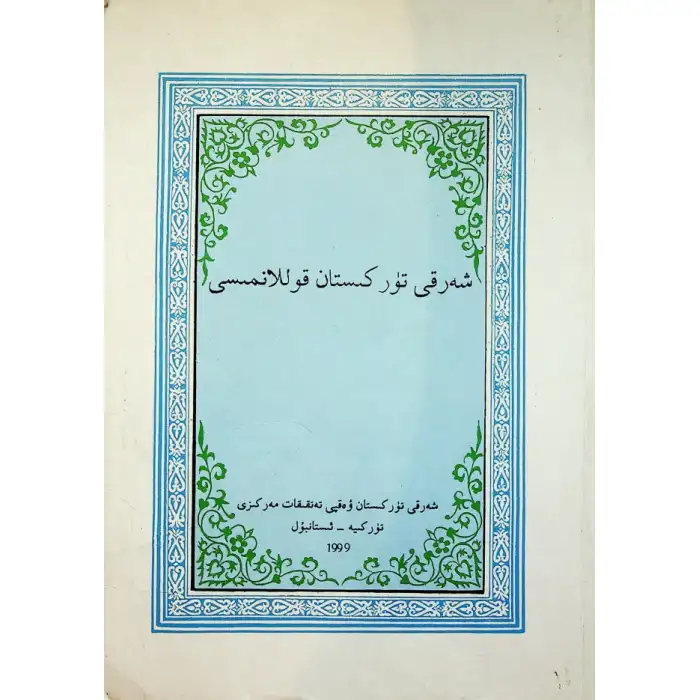 شەرقى تۈركىستان قوللانمىسى
شەرقى تۈركىستان ۋەقپى تەتقىقات مەركىزى
تۈركىيە - ئىستانبۇل
1999